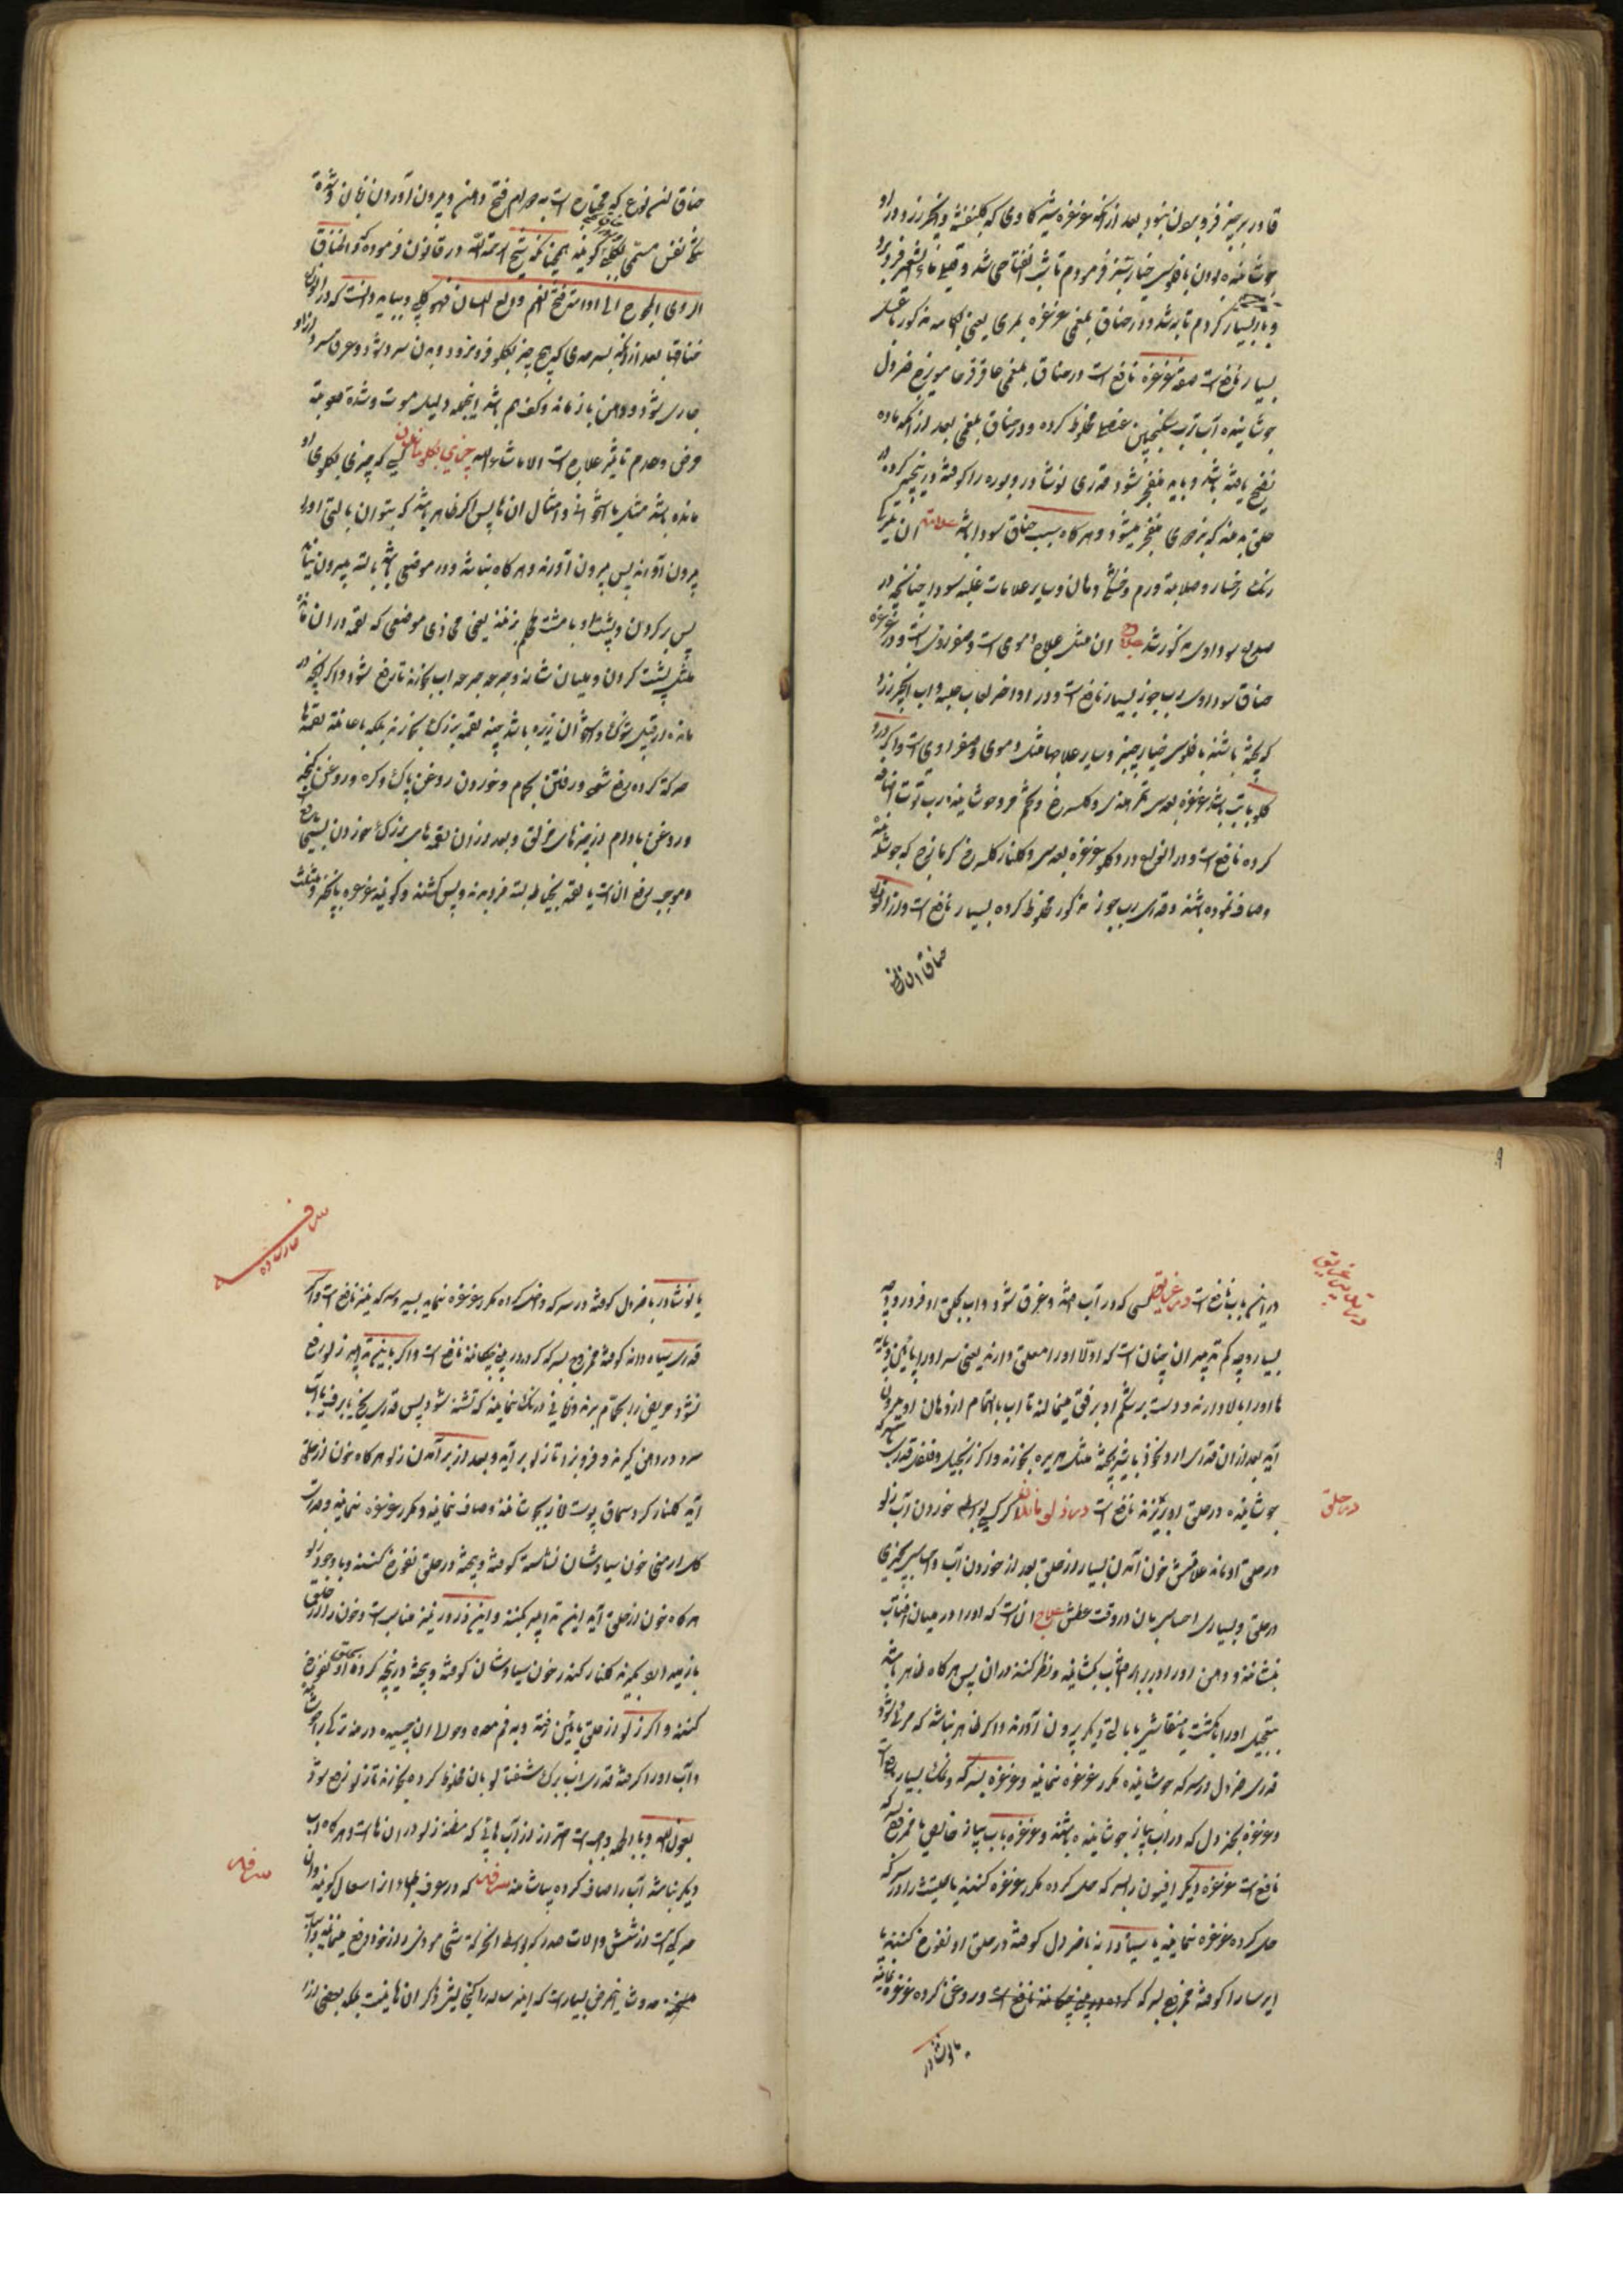 قادر بر چیز فرو بردن نبود بعد از آنکه غرغره بشیر گاوی که بنفشه و انجیر زرد در او
جوشانیده بودن با فلوس خیار شنبر فرمودم تا شب انفتاحی شد و قی ماء الشعیر فرو برد
کردم تا به شد و در خناق بلغمی غرغره بمری یعنی آبکامه مذکور با عسل
بسیار نافع است صفة غرغره نافع است در خناق بلغمی عاقرقرحا مویزج خردل
جوشانیده آب ترب سکنجبین عنصلی مخلوط کرده و در خناق بلغمی بعد از آنکه ماده
نضج یافته باشد و باید منفجر شود قدری نوشادر و بوره را کوفته و بیخته کرده در
حلق دمند که بزودی منفجر میشود و هرگاه سبب خناق سودا باشد علامة آن تیرگی
رنک رخسار و صلابة ورم و خشکی دهان و سایر علامات غلبه سودا چنانچه در
صداع سوداوی مذکور شد علاج آن مثل علاج دموی است و صفراوی است و در غرغره
خناق سوداوی رب جوز بسیار نافع است و در اواخر لعاب حلبه و آب انجیر زرد
کوبیخته باشند با فلوس خیار چنبر و سایر علاجها مثل دموی و صفراوی است و اگر درد
گلو با تب باشد غرغره بعدس تمر هندی و گلسرخ و تخم خرفه جوشانیده رب توت اضافه
کرده نافع است و در انواع درد گلو غرغره بعدس و گلنار گلسرخ کزمازج که جوشانیده
و صاف نموده باشند و قدری رب جوز مذکور مخلوط کرده بسیار نافع است و از انواع
خناق آن
خناق آن نوع که محتاج است به مدام فتح دهن و بیرون آوردن زبان و شدة
تنگی نفس مسمی گویند همچنانکه شیخ رحمة الله در قانون فرموده که و الخناق
الردی المحوج الی ادامة فتح الفم و دلع اللسان فهو کلبی و بباید دانست که در انواع
خناقها بعد از آنکه بسرحدی که هیچ چیز بگلو فرو نرود و بدن سرد شود و عرق سرد از او
جاری شود و دهن باز مانده و کف هم باشد اینهمه دلیل موت و شدة صعوبة
مرض و عدم تاثیر علاج است الا ما شاء الله چیزی بگلو ماندن کسی که چیزی بگلوی او
مانده باشد مثل استخوان و امثال آن پس اگر ظاهر باشد که بتوان بآلتی او را
بیرون آورند پس بیرون آورند و هرگاه نباشد و در موضعی باشد بآلت بیرون نیاید
پس بر گردن و پشت او با مشت محکم بزنند یعنی محاذی موضعی که لقمه در آن مانده
مثل پشت گردن و میان شانه و جرعه جرعه آب بخورند تا رفع شود و اگر آنچه در
مانده از قبیل خوک و استخوان ریزه باشد چند لقمه بزرک بخورند بلکه باعانة لقمها
حرکة کرده رفع شود و رفتن بحمام و خوردن روغن پاک و کره و روغن کنجد
و روغن بادام از چیزهای مزلق و بعد از آن لقمه های بزرک خوردن بسی نافع
و موجب رفع آن است یا لقمه بنخی بسته فرو برند و پس کشند و گویند غرغره بانجیر و مثلث
درین باب نافع است در غریق کسی که در آب افتد و غرق شود و آب بحلق او فرو رود چه
بسیار و چه کم تدبیر آن چنان است که اولا او را معلق دارند یعنی سر او را پائین و پای
ها او را بالا دارند و دست بر شکم او برفق میمالند تا آب بالتمام از دهان او بیرون
آید بعد از آن قدری آرد نخود با شیر پخته مثل حریره بخورند و اگر زنجبیل و فلفل قدری
جوشانیده در حلق او بریزند نافع است در زلو ماندن اگر کسی بواسطه خوردن آب زلو
در حلق او ماند علامتش خون آمدن بسیار از حلق بعد از خوردن آب و احساس بچیزی
در حلق و بسیاری احساس بآن در وقت عطش علاج آن است که او را در میان آفتاب
بنشانند و دهن او را در برابر آفتاب بگشایند و نظر کنند در آن پس هرگاه ظاهر باشد
بتعجیل او را بانگشت یا منقاش یا بآلتی دیگر بیرون آورند و اگر ظاهر نباشد که مرئی شود
قدری خردل در سرکه جوشانیده مکرر غرغره نمایند و غرغره بسرکه و نمک بسیار نافع است
و غرغره بخردل که در آب پیاز جوشانیده باشند و غرغره باب پیاز خالص یا ممزوج بسرکه
نافع است غرغره دیگر افیون را بسرکه حل کرده مکرر غرغره کنند یا حلتیت را در سرکه
حل کرده غرغره نمایند یا سیاه دانه با خردل کوفته در حلق او نفوخ کنند یا
ایرسا را کوفته ممزوج بسرکه کرده در بینی چکانند نافع است و روغنی کرده غرغره نمایند
یا نوشادر
در حلق
یا نوشادر با خردل کوفته در سرکه داخل کرده مکرر غرغره نمایند بسیر و سرکه نیز نافع است و اگر
قدری سیاه دانه کوفته ممزوج بسرکه کرده در بینی چکانند نافع است و اگر باین تدابیر زلو رفع
نشود مریض را بحمام برند و زمانی درنک نمایند که تشنه شود پس قدری یخ یا برف یا آب
سرد در دهن گیرند و فرو نبرد تا زلو بر آید و بعد از بر آمدن زلو هرگاه خون از حلق
آید گلنار کرد سماق پوست انار بجوشانند و صاف نمایند و مکرر غرغره نمایند و قدری
گل ارمنی خون سیاوشان نشاسته کوفته و بیخته در حلق نفوخ کنند و با وجود زلو
هرگاه خون از حلق آید این تدابیر بکنند و این ذرور نیز مناسب است و خون را از حلق
باز میدارد بگیرند گلنار کندر خون سیاوشان کوفته و بیخته در پنجه کرده بحلق او نفوخ
کنند و اگر زلو از حلق پائین رفته و به فم معده و حوالی آن چسپیده درمنه ترکی را جوشانیده
و آب او را گرفته قدری آب برک شفتالو بآن مخلوط کرده بخورند تا زلو رفع شود
بعون الله و بالجمله واجب است احتراز از آب هائی که مظنه زلو در آن ها است و هرگاه آب
دیگر نباشد آب را صاف کرده بیاشامند سرفه که در عرف اطبا و از اسعال گویند و آن
حرکتی است از شش و آلات صدر که بواسطه آن حرکة شی موذی را از خود دفع مینماید و اسباب
حدوث این مرض بسیار است که این رساله را گنجایش ذکر آن ها نیست بلکه بعضی از آن
سرفه